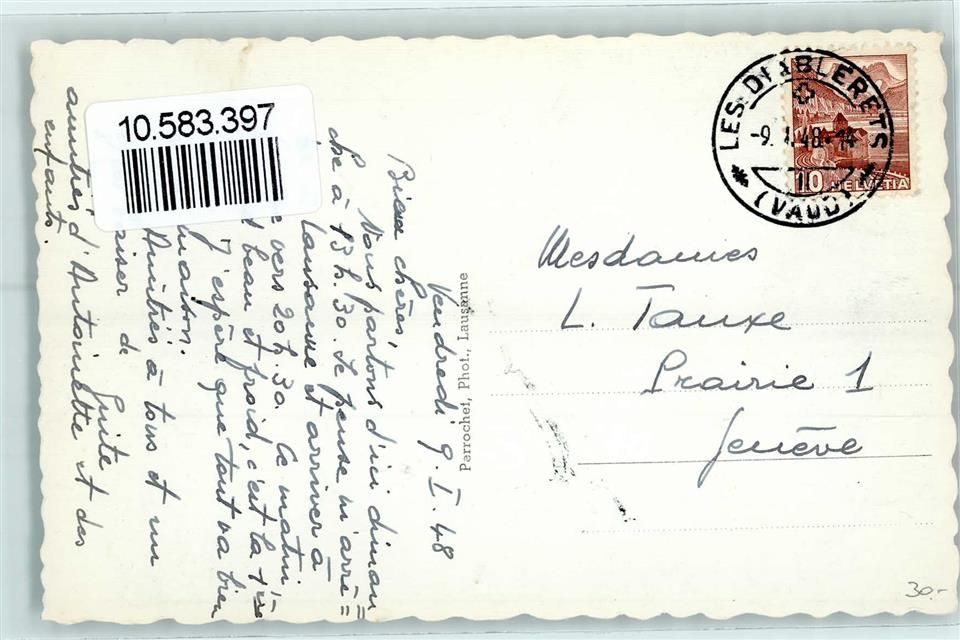 10.583.397
LES DIABLERETS
-9. I. 48.-14
10
(VAUD)
10 HELVETIA
Vendredi 9. I. 48
Bien chères,
Nous partons d'ici diman=
che à 13 h. 30. Je pense m'arrê=
Lausanne et arriver à
vers 20 h. 30. Ce matin
beau et froid, c'est la 1ère
J'espère que tout va bien
maison.
Amitiés à tous et un
baiser de Guite
amitiés d'Antoinette et des
enfants.
Perrochet, Phot., Lausanne
Mesdames
L. Tauxe
Prairie 1
Genève
30.-